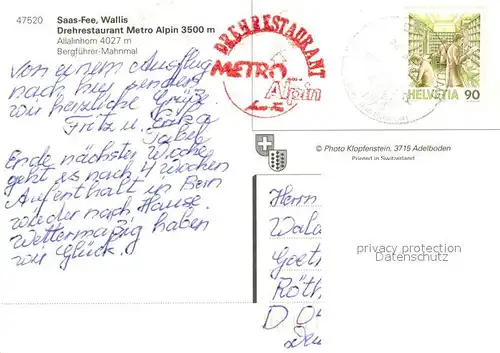 47520
Saas-Fee, Wallis
Drehrestaurant Metro Alpin 3500 m
Allalinhorn 4027 m
Bergführer-Mahnmal
DREHRESTAURANT
METRO
Alpin
HELVETIA 90
Von einem Ausflug
nach hier senden
wir herzliche Grüße
Fritz u. Erika
Ende nächster Woche
geht es nach 4 Wochen
Aufenthalt in
wieder nach Hause.
Wettermäßig haben
wir Glück.
© Photo Klopfenstein, 3715 Adelboden
Printed in Switzerland
Herrn
Goet
Röth
D
privacy protection
Datenschutz